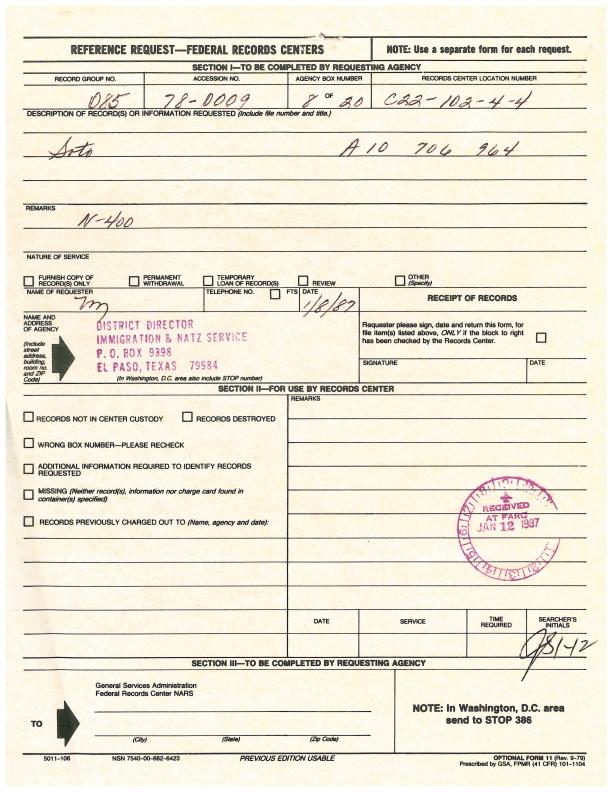 REFERENCE REQUEST—FEDERAL RECORDS CENTERS
NOTE: Use a separate form for each request.
SECTION I—TO BE COMPLETED BY REQUESTING AGENCY
RECORD GROUP NO. ACCESSION NO. AGENCY BOX NUMBER RECORDS CENTER LOCATION NUMBER
085 78-0009 8 OF 20 C22-102-4-4
DESCRIPTION OF RECORD(S) OR INFORMATION REQUESTED (Include file number and title.)
Soto A 10 706 964
REMARKS
N-400
NATURE OF SERVICE
FURNISH COPY OF RECORD(S) ONLY
PERMANENT WITHDRAWAL
TEMPORARY LOAN OF RECORD(S)
REVIEW
OTHER (Specify)
NAME OF REQUESTER TELEPHONE NO. FTS DATE
1/8/87
RECEIPT OF RECORDS
NAME AND ADDRESS OF AGENCY
(Include street address, building, room no. and ZIP Code)
DISTRICT DIRECTOR
IMMIGRATION & NATZ SERVICE
P.O. BOX 9398
EL PASO, TEXAS 79984
(In Washington, D.C. area also include STOP number)
Requester please sign, date and return this form, for
file item(s) listed above, ONLY if the block to right
has been checked by the Records Center.
SIGNATURE DATE
SECTION II—FOR USE BY RECORDS CENTER
REMARKS
RECORDS NOT IN CENTER CUSTODY RECORDS DESTROYED
WRONG BOX NUMBER—PLEASE RECHECK
ADDITIONAL INFORMATION REQUIRED TO IDENTIFY RECORDS
REQUESTED
MISSING (Neither record(s), information nor charge card found in
container(s) specified)
RECORDS PREVIOUSLY CHARGED OUT TO (Name, agency and date):
RECEIVED
AT FARC
JAN 12 1987
DATE SERVICE TIME REQUIRED SEARCHER'S INITIALS
1-12
SECTION III—TO BE COMPLETED BY REQUESTING AGENCY
General Services Administration
Federal Records Center NARS
TO
(City) (State) (Zip Code)
NOTE: In Washington, D.C. area
send to STOP 386
5011-106 NSN 7540-00-682-6423 PREVIOUS EDITION USABLE OPTIONAL FORM 11 (Rev. 9-79)
Prescribed by GSA, FPMR (41 CFR) 101-1104